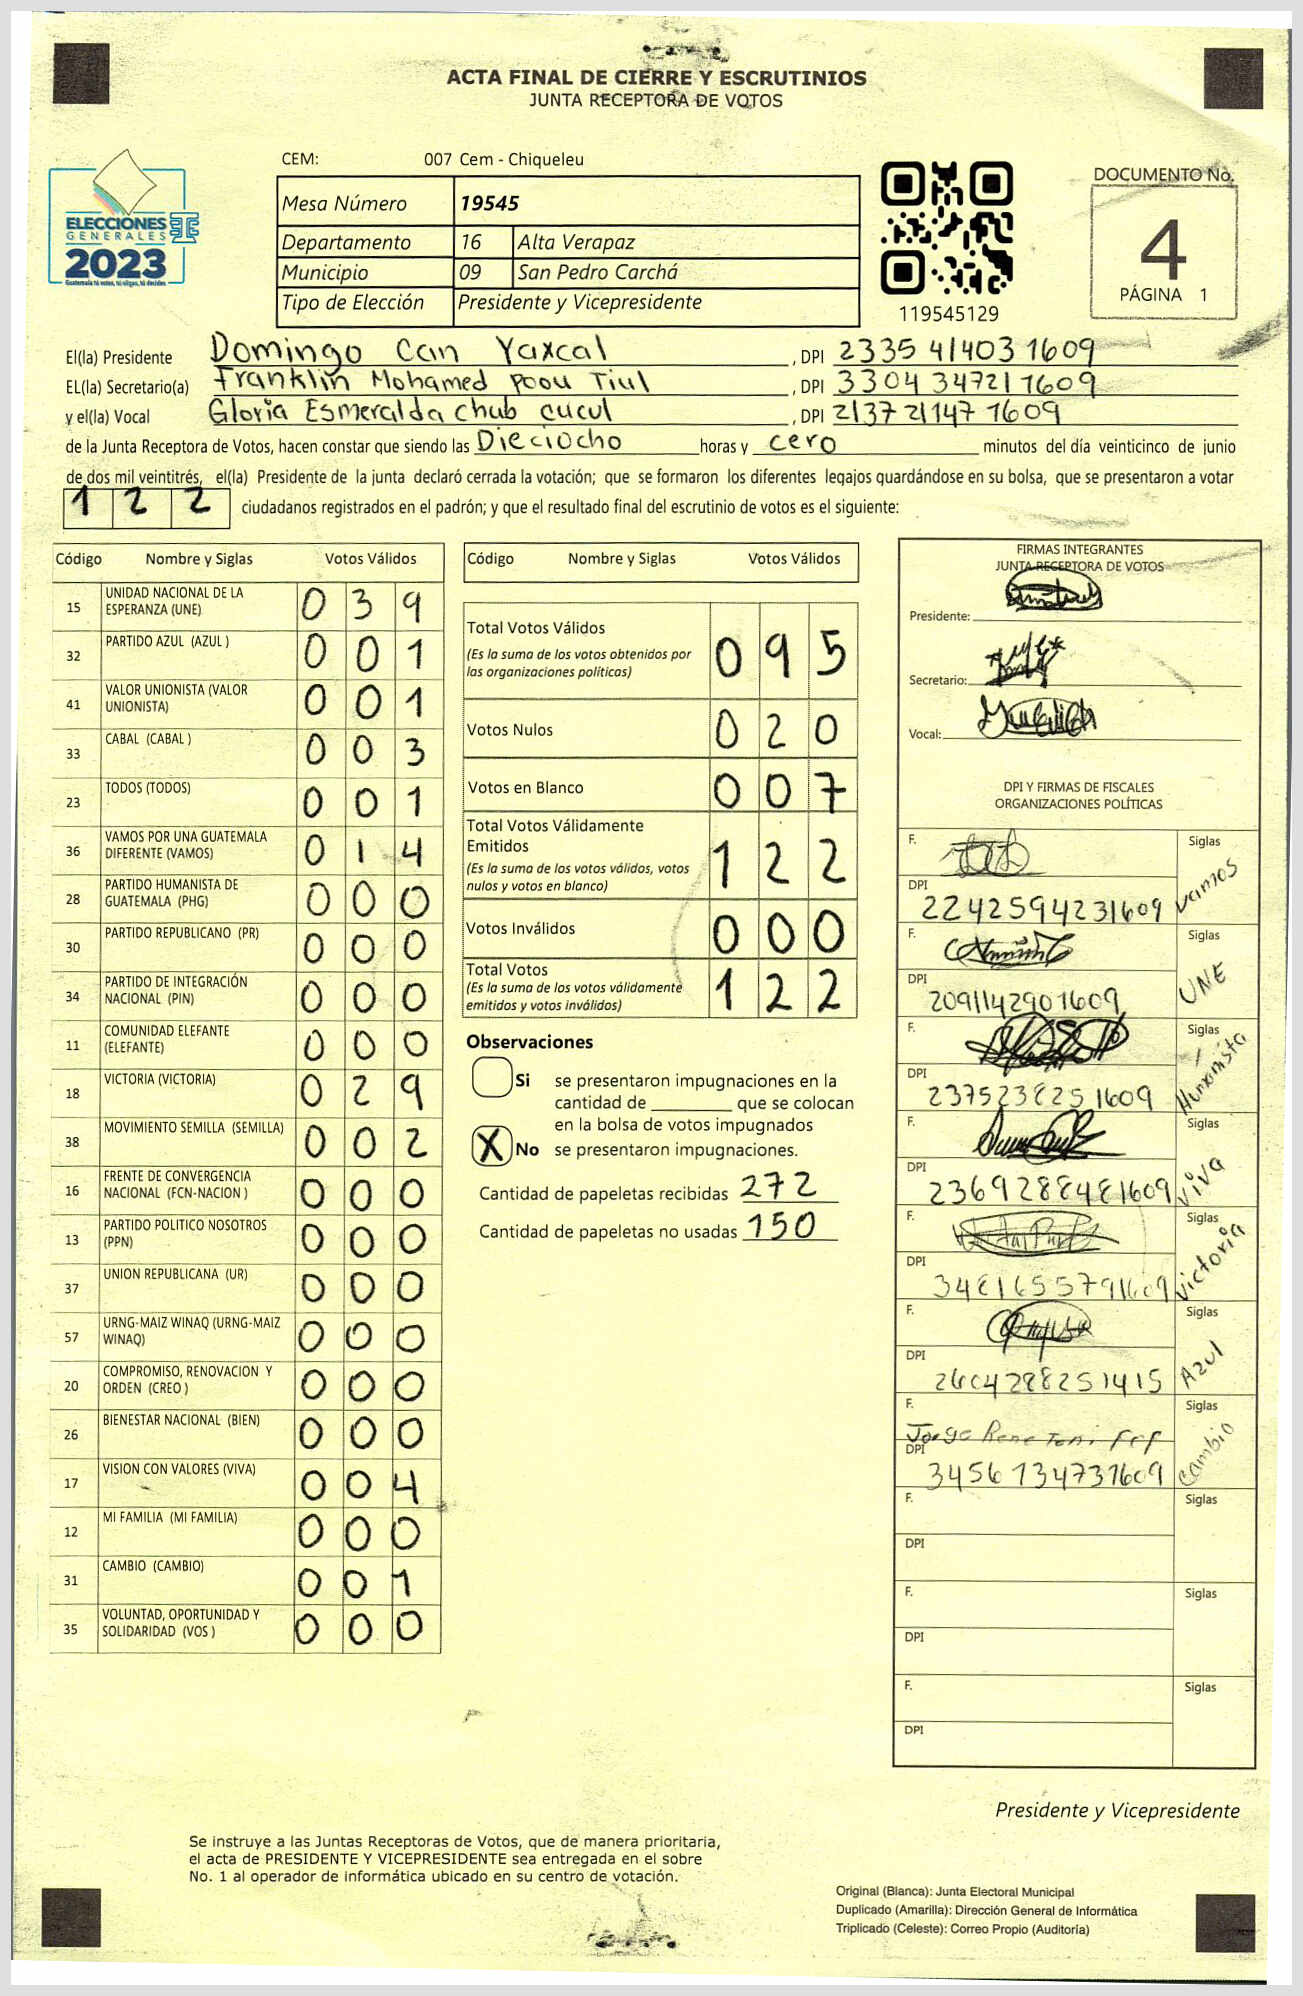 ACTA FINAL DE CIERRE Y ESCRUTINIOS
JUNTA RECEPTORA DE VOTOS
CEM: 007 Cem - Chiqueleu
ELECCIONES
GENERALES
2023
Guatemala tú votas, tú eliges, tú decides
Mesa Número 19545
Departamento 16 Alta Verapaz
Municipio 09 San Pedro Carchá
Tipo de Elección Presidente y Vicepresidente
119545129
DOCUMENTO No.
4
PÁGINA 1
El(la) Presidente Domingo Can Yaxcal , DPI 2335 41403 1609
EL(la) Secretario(a) Franklin Mohamed poou Tiul , DPI 3304 34721 1609
y el(la) Vocal Gloria Esmeralda chub cucul , DPI 2137 21147 1609
de la Junta Receptora de Votos, hacen constar que siendo las Dieciocho horas y cero minutos del día veinticinco de junio
de dos mil veintitrés, el(la) Presidente de la junta declaró cerrada la votación; que se formaron los diferentes legajos guardándose en su bolsa, que se presentaron a votar
1 2 2 ciudadanos registrados en el padrón; y que el resultado final del escrutinio de votos es el siguiente:
Código Nombre y Siglas Votos Válidos
15 UNIDAD NACIONAL DE LA ESPERANZA (UNE) 0 3 9
32 PARTIDO AZUL (AZUL ) 0 0 1
41 VALOR UNIONISTA (VALOR UNIONISTA) 0 0 1
33 CABAL (CABAL ) 0 0 3
23 TODOS (TODOS) 0 0 1
36 VAMOS POR UNA GUATEMALA DIFERENTE (VAMOS) 0 1 4
28 PARTIDO HUMANISTA DE GUATEMALA (PHG) 0 0 0
30 PARTIDO REPUBLICANO (PR) 0 0 0
34 PARTIDO DE INTEGRACIÓN NACIONAL (PIN) 0 0 0
11 COMUNIDAD ELEFANTE (ELEFANTE) 0 0 0
18 VICTORIA (VICTORIA) 0 2 9
38 MOVIMIENTO SEMILLA (SEMILLA) 0 0 2
16 FRENTE DE CONVERGENCIA NACIONAL (FCN-NACION ) 0 0 0
13 PARTIDO POLITICO NOSOTROS (PPN) 0 0 0
37 UNION REPUBLICANA (UR) 0 0 0
57 URNG-MAIZ WINAQ (URNG-MAIZ WINAQ) 0 0 0
20 COMPROMISO, RENOVACION Y ORDEN (CREO ) 0 0 0
26 BIENESTAR NACIONAL (BIEN) 0 0 0
17 VISION CON VALORES (VIVA) 0 0 4
12 MI FAMILIA (MI FAMILIA) 0 0 0
31 CAMBIO (CAMBIO) 0 0 1
35 VOLUNTAD, OPORTUNIDAD Y SOLIDARIDAD (VOS ) 0 0 0
Código Nombre y Siglas Votos Válidos
Total Votos Válidos 0 9 5
(Es la suma de los votos obtenidos por
las organizaciones políticas)
Votos Nulos 0 2 0
Votos en Blanco 0 0 7
Total Votos Válidamente
Emitidos 1 2 2
(Es la suma de los votos válidos, votos
nulos y votos en blanco)
Votos Inválidos 0 0 0
Total Votos 1 2 2
(Es la suma de los votos válidamente
emitidos y votos inválidos)
Observaciones
Si se presentaron impugnaciones en la
cantidad de ________ que se colocan
en la bolsa de votos impugnados
X No se presentaron impugnaciones.
Cantidad de papeletas recibidas 272
Cantidad de papeletas no usadas 150
FIRMAS INTEGRANTES
JUNTA RECEPTORA DE VOTOS
Presidente:
Secretario:
Vocal:
DPI Y FIRMAS DE FISCALES
ORGANIZACIONES POLÍTICAS
F. Siglas vamos
DPI 2242594231609
F. Siglas UNE
DPI 2091142901609
F. Siglas Humanista
DPI 2375238251609
F. Siglas viva
DPI 2369288481609
F. Siglas victoria
DPI 3481655791609
F. Siglas Azul
DPI 2604288251415
F. Jorge Rene Siglas cambio
DPI 3456134731609
F. Siglas
DPI
F. Siglas
DPI
F. Siglas
DPI
Presidente y Vicepresidente
Se instruye a las Juntas Receptoras de Votos, que de manera prioritaria,
el acta de PRESIDENTE Y VICEPRESIDENTE sea entregada en el sobre
No. 1 al operador de informática ubicado en su centro de votación.
Original (Blanca): Junta Electoral Municipal
Duplicado (Amarilla): Dirección General de Informática
Triplicado (Celeste): Correo Propio (Auditoría)